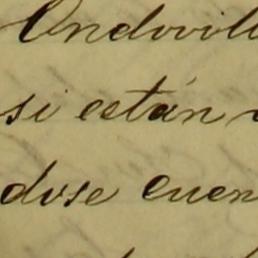 Ondovill
si están
dose cuen